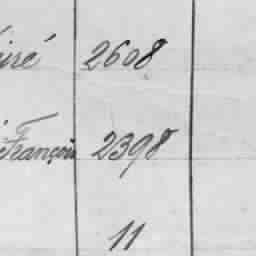 2608
François 2398
11